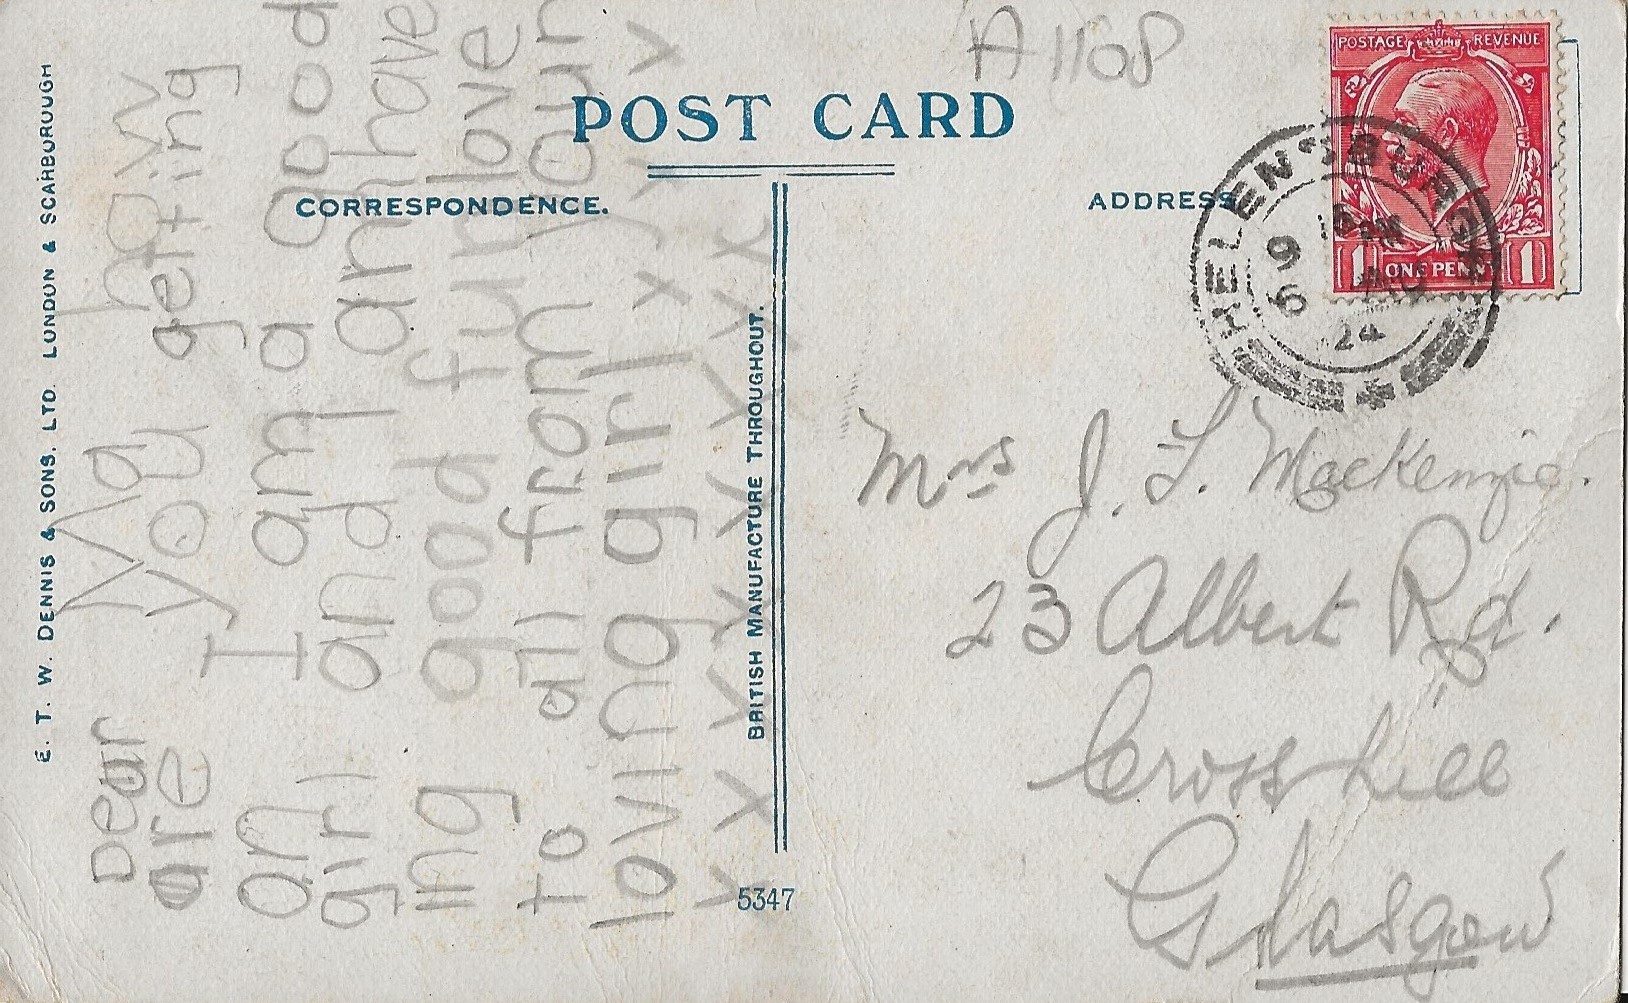 E. T. W. DENNIS & SONS, LTD. LONDON & SCARBOROUGH
POST CARD
CORRESPONDENCE.
Dear Ma how
are you getting
on I am a good
girl and I an have
ing good fun love
to all from your
loving girl x x x x
x x x x x x x x x x
BRITISH MANUFACTURE THROUGHOUT.
5347
A1108
ADDRESS
POSTAGE REVENUE
1 ONE PENNY 1
HELENSBURGH
6 AU
24
Mrs J. L. MacKenzie.
23 Albert Rd.
Crosshill
Glasgow